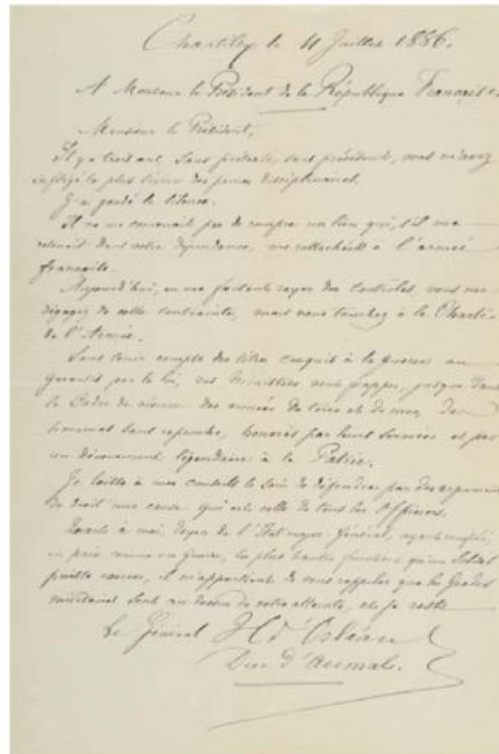 Chantilly le 11 Juillet 1886.
A Monsieur le Président de la République Française.
Monsieur le Président,
Il y a trois ans, sans prétexte, sans précédents, vous m'avez
infligé la plus sévère des peines disciplinaires.
J'ai gardé le silence.
Il ne me convenait pas de rompre un lien qui, s'il me
retenait dans votre dépendance, me rattachait à l'armée
française.
Aujourd'hui, en me faisant rayer des contrôles, vous me
dégagez de cette contrainte, mais vous touchez à la Charte
de l'Armée.
Sans tenir compte des titres conquis à la guerre ou
garantis par la loi, vos Ministres vont frapper, jusque dans
le Cadre de réserve des armées de terre et de mer, des
hommes sans reproche, honorés par leurs services et par
un dévouement légendaire à la Patrie.
Je laisse à mes conseils le soin de défendre par des arguments
de droit une cause qui est celle de tous les Officiers.
Quant à moi, doyen de l'Etat major Général, ayant rempli,
en paix comme en guerre, les plus hautes fonctions qu'un Soldat
puisse exercer, il m'appartient de vous rappeler que les Grades
militaires sont au dessus de votre atteinte, et je reste
Le Général H d'Orléans
Duc d'Aumale.